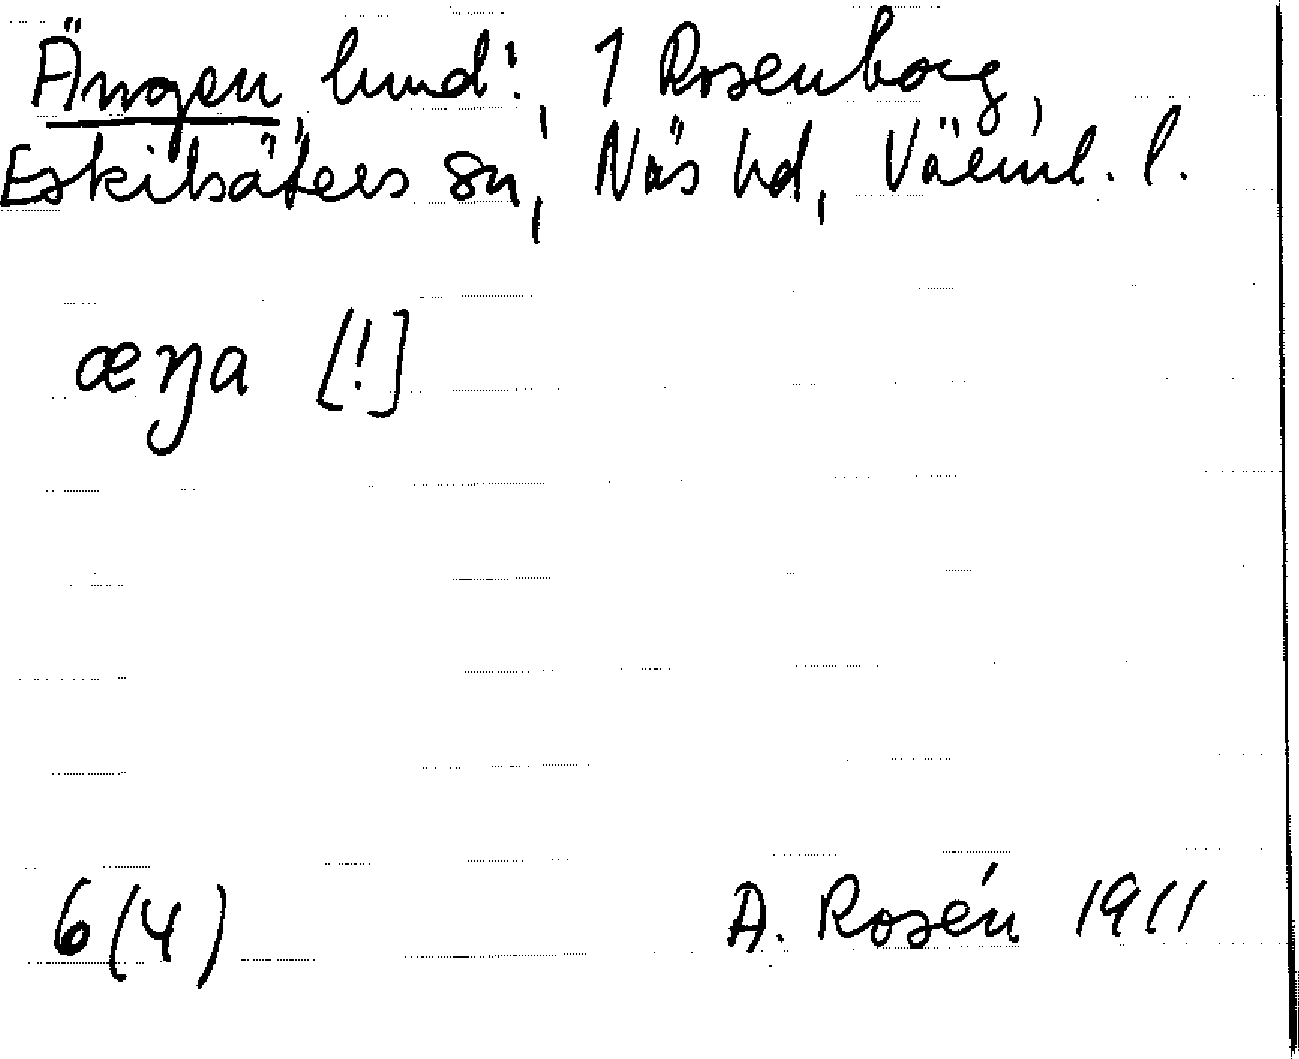 Ängen, lund:, 1 Rosenborg,
Eskilsäters sn, Näs hd, Värml. l.
æŋa [!]
6(4) A. Rosén 1911